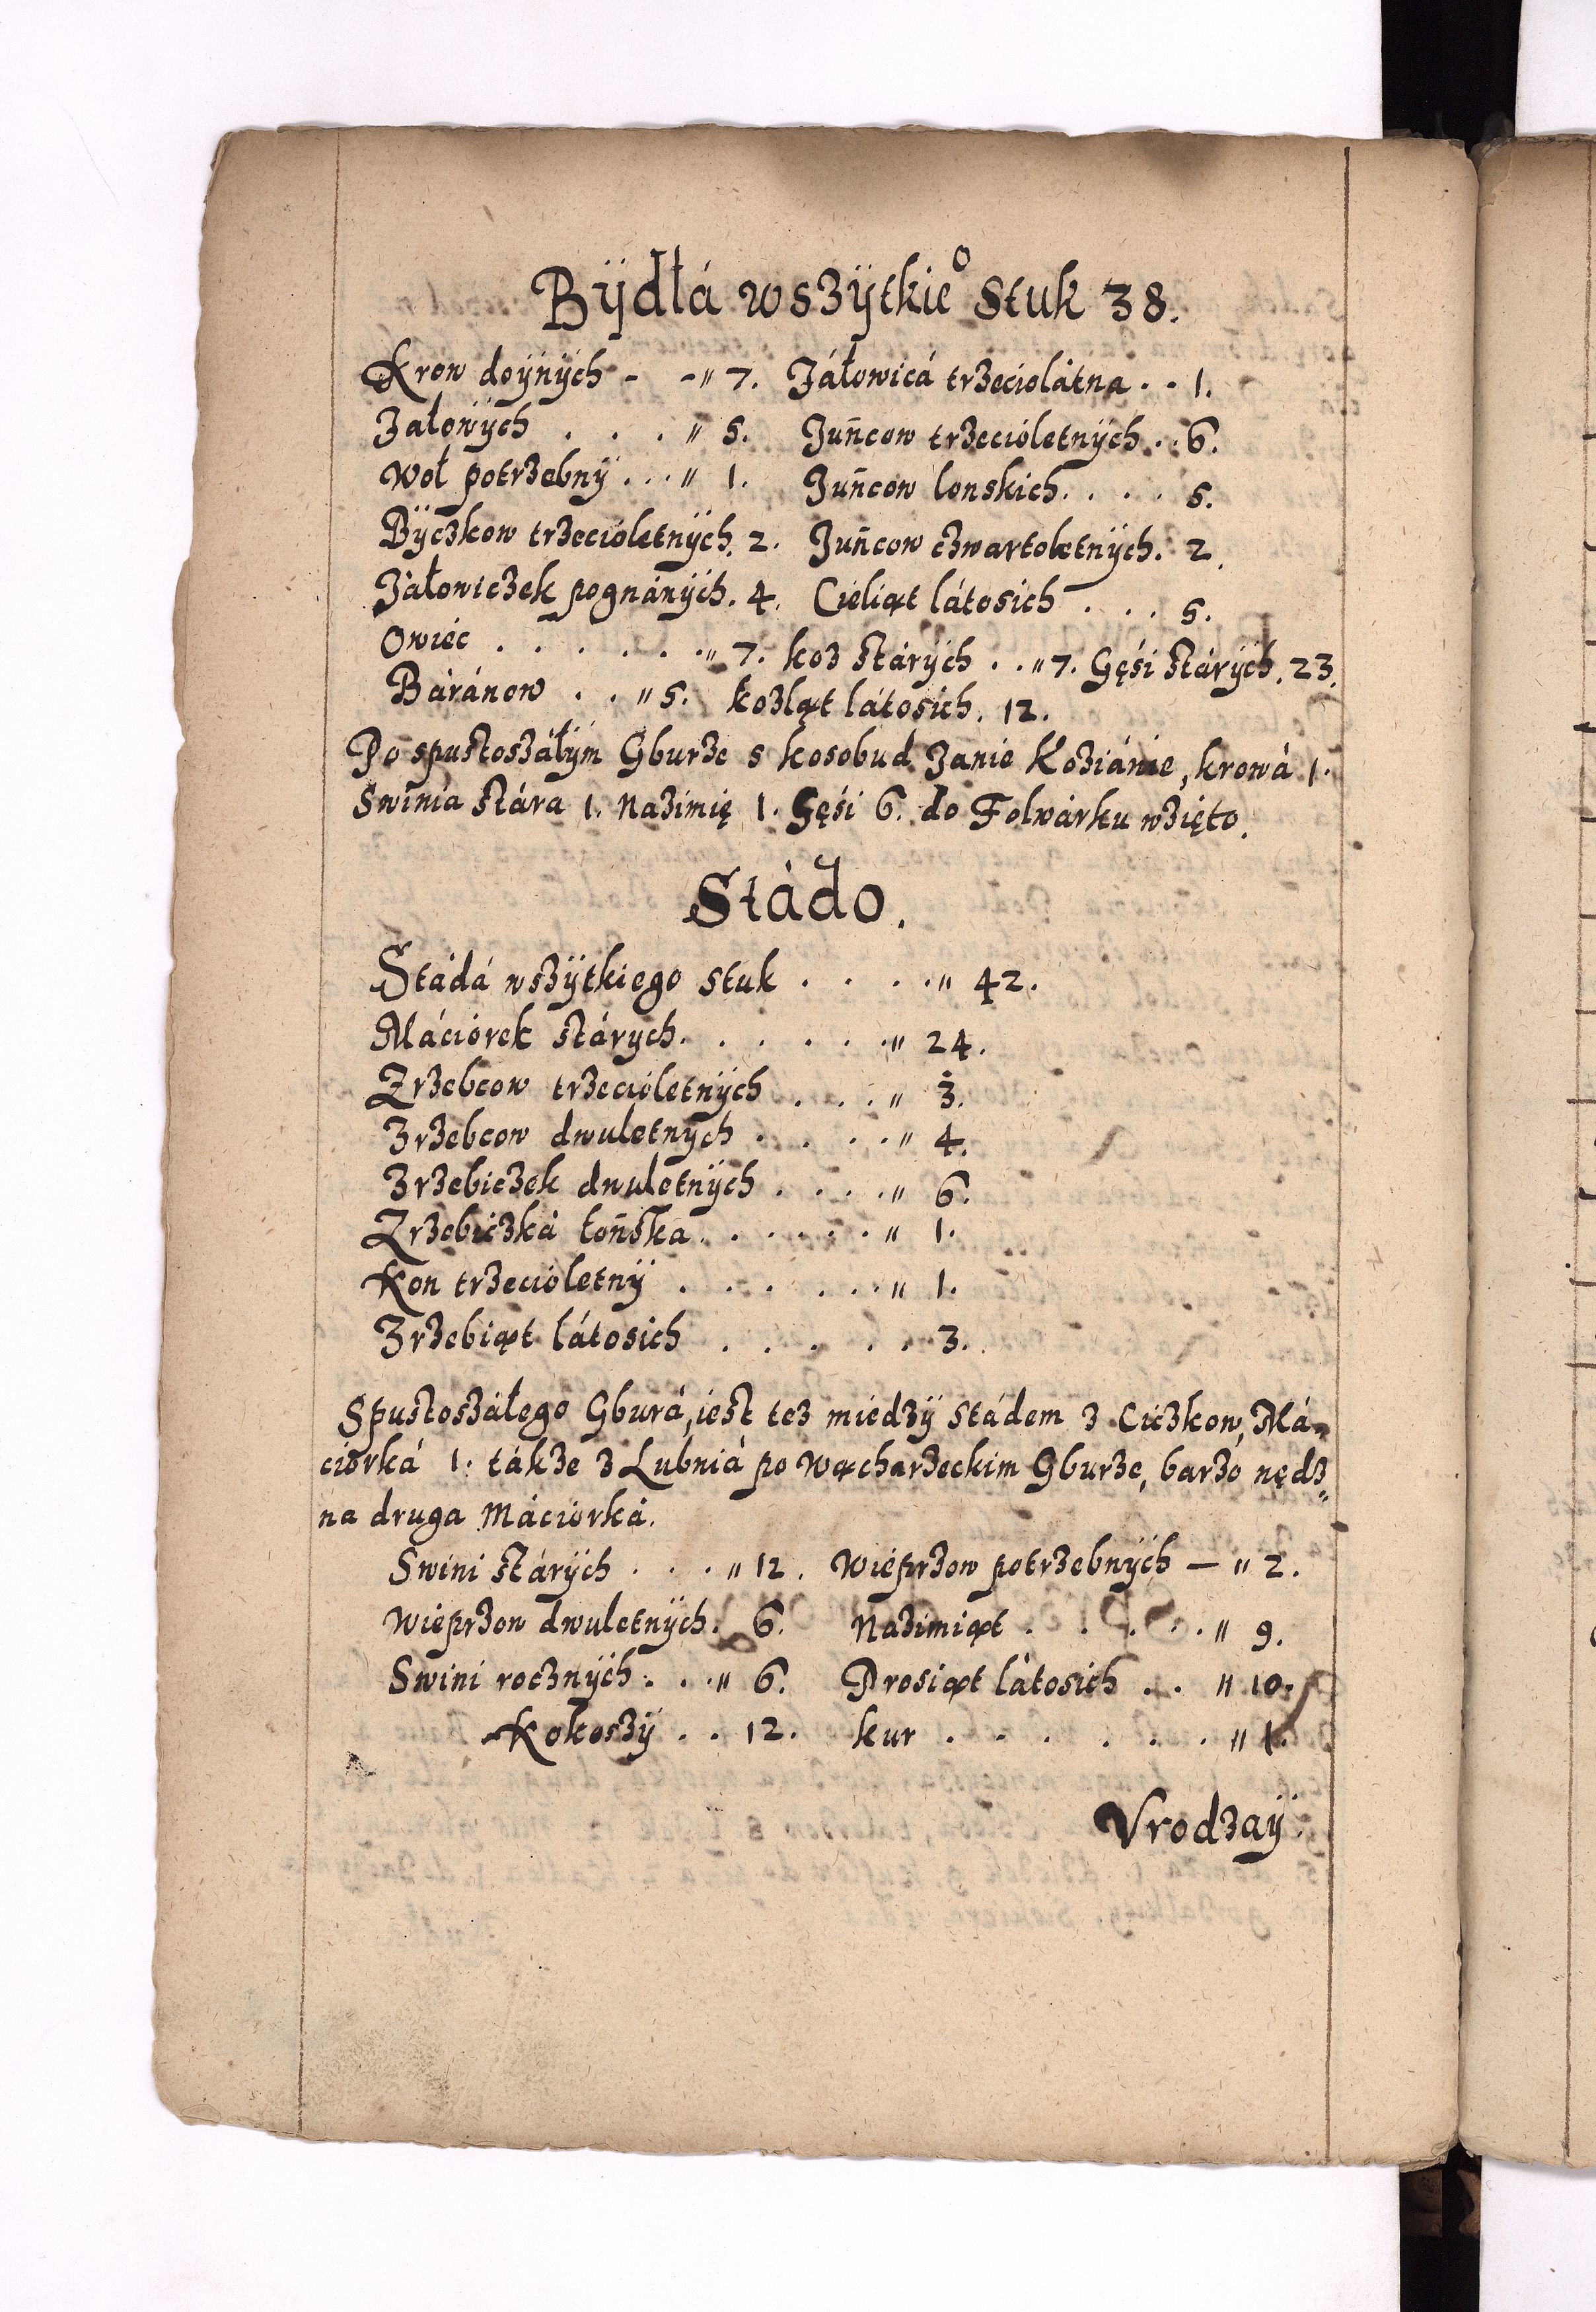 Bÿdłá wszÿtkie⁰ Stuk 38.
Krow doÿnÿch - -〃 7. Jáłowicá trzeciolátna . . 1.
Jałowÿch . . . 〃 5. Juńcow trzecioletnÿch . . 6.
Woł potrzebnÿ . . . 〃 1. Juńcow lonskich . . . . 5.
Bÿczkow trzecioletnÿch. 2. Juńcow czwartoletnÿch. 2.
Jałowiczek pognánÿch. 4. Cieliąt látosich . . . 5.
Owiec . . . . . . 〃 7. koz stárÿch . . 〃 7. Gęśi stárÿch. 23.
Báránow . . 〃 5. koźląt látosich. 12.
Po spustoszáłÿm Gburze s kosobud Janie Koziánie, krowá 1.
Swinia stára 1. Nazimię 1. Gęśi 6. do Folwárku wzięto.
Stádo.
Stádá wszÿtkiego stuk . . . . 〃 42.
Máciorek stárych. . . . . . 〃 24.
Zrzebcow trzecioletnÿch . . . 〃 3.
Zrzebcow dwuletnych . . . . 〃 4.
Zrzebiczek dwuletnÿch . . . . 〃 6.
Zrzebiczká łońska . . . . . . 〃 1.
Kon trzecioletnÿ . . . . . . 〃 1.
Zrzebiąt látosich . . . . . 3.
Spustoszáłego Gburá, iest tez miedzÿ Stádem z Ciczkow, Má-
ciorká 1. tákze z Lubniá po Wącharzeckim Gburze, barzo nędz=
na druga Máciorká.
Swini stárÿch . . . 〃 12. Wieprzow potrzebnÿch — 〃 2.
Wieprzow dwuletnÿch. 6. Nazimiąt . . . . . 〃 9.
Swini rocznÿch . . . 〃 6. Prosiąt látosich . . 〃 10.
Kokoszÿ . . 12. kur . . . . . . 〃 1.
Vrodzaÿ.